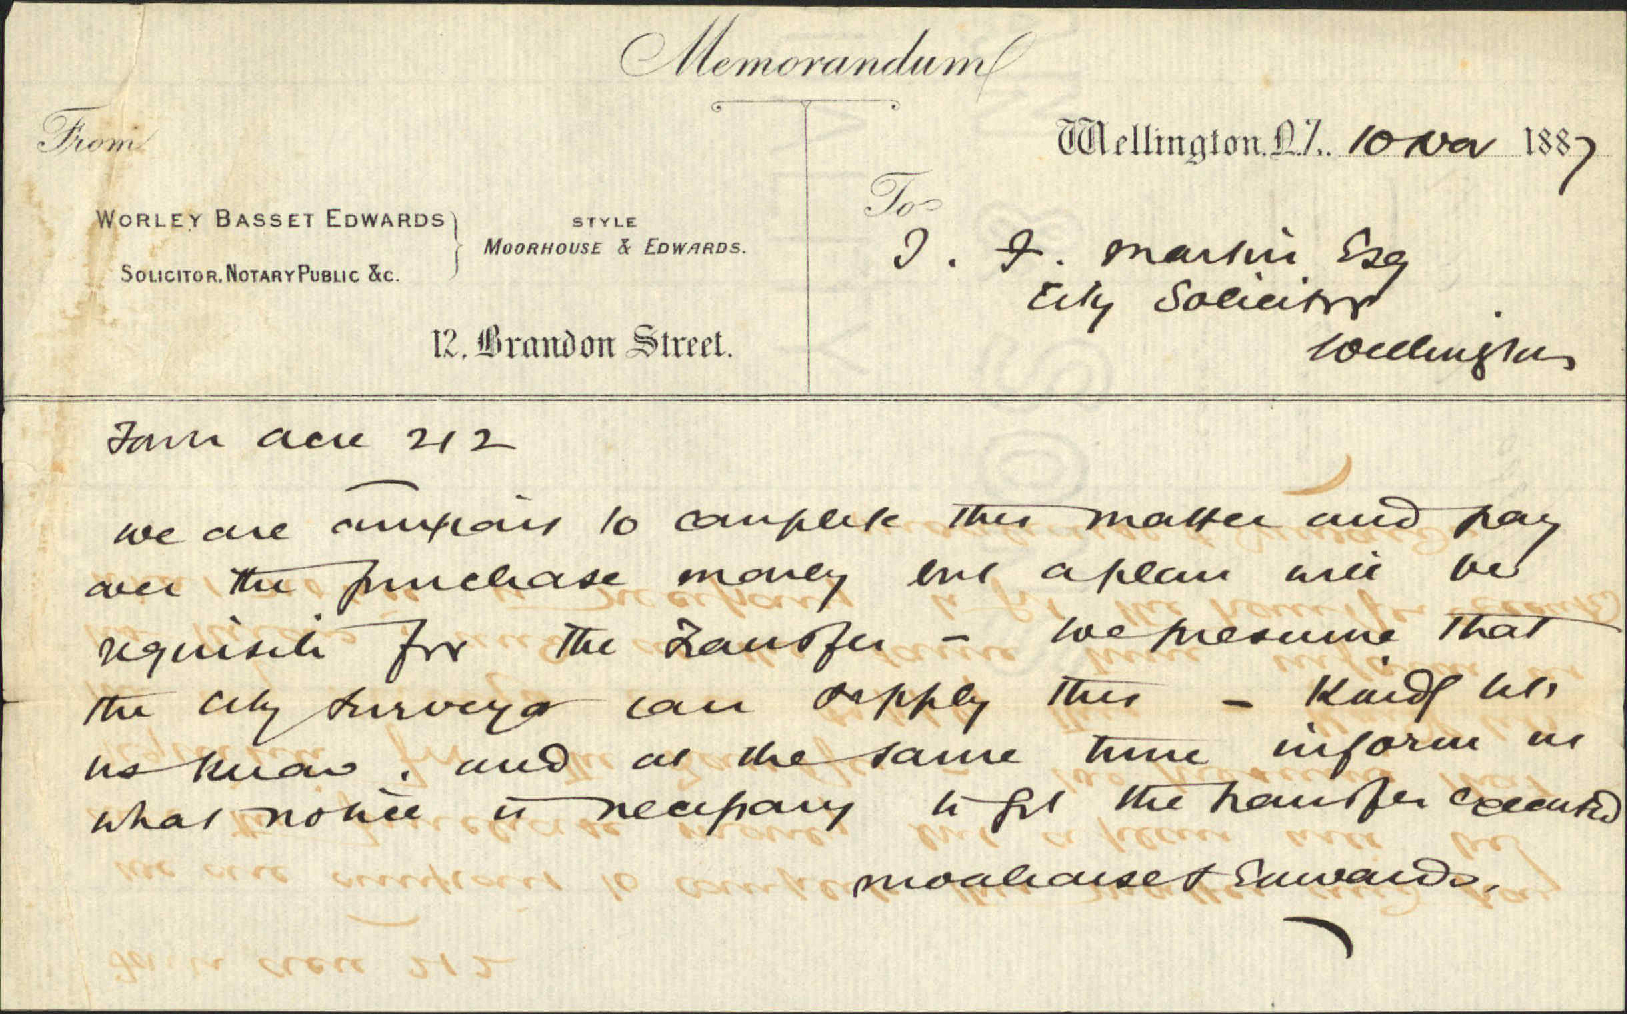 Memorandum
From
WORLEY BASSET EDWARDS
SOLICITOR, NOTARY PUBLIC &C.
STYLE
MOORHOUSE & EDWARDS.
12, Brandon Street.
Wellington, N.Z., 10 Nov 1887
To
T. F. Martin Esq
City Solicitor
Wellington
Town Acre 212
We are anxious to complete this matter and pay
over the purchase money but a plan will be
requisite for the Transfer - We presume that
the City Surveyor can supply this - Kindly let
us know, and at the same time inform us
what notice is necessary to get the transfer executed
Moorhouse & Edwards.